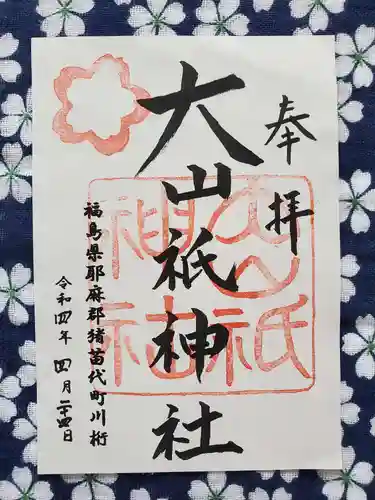 奉拝
大山祇神社
福島県耶麻郡猪苗代町川桁
令和四年 四月二十四日